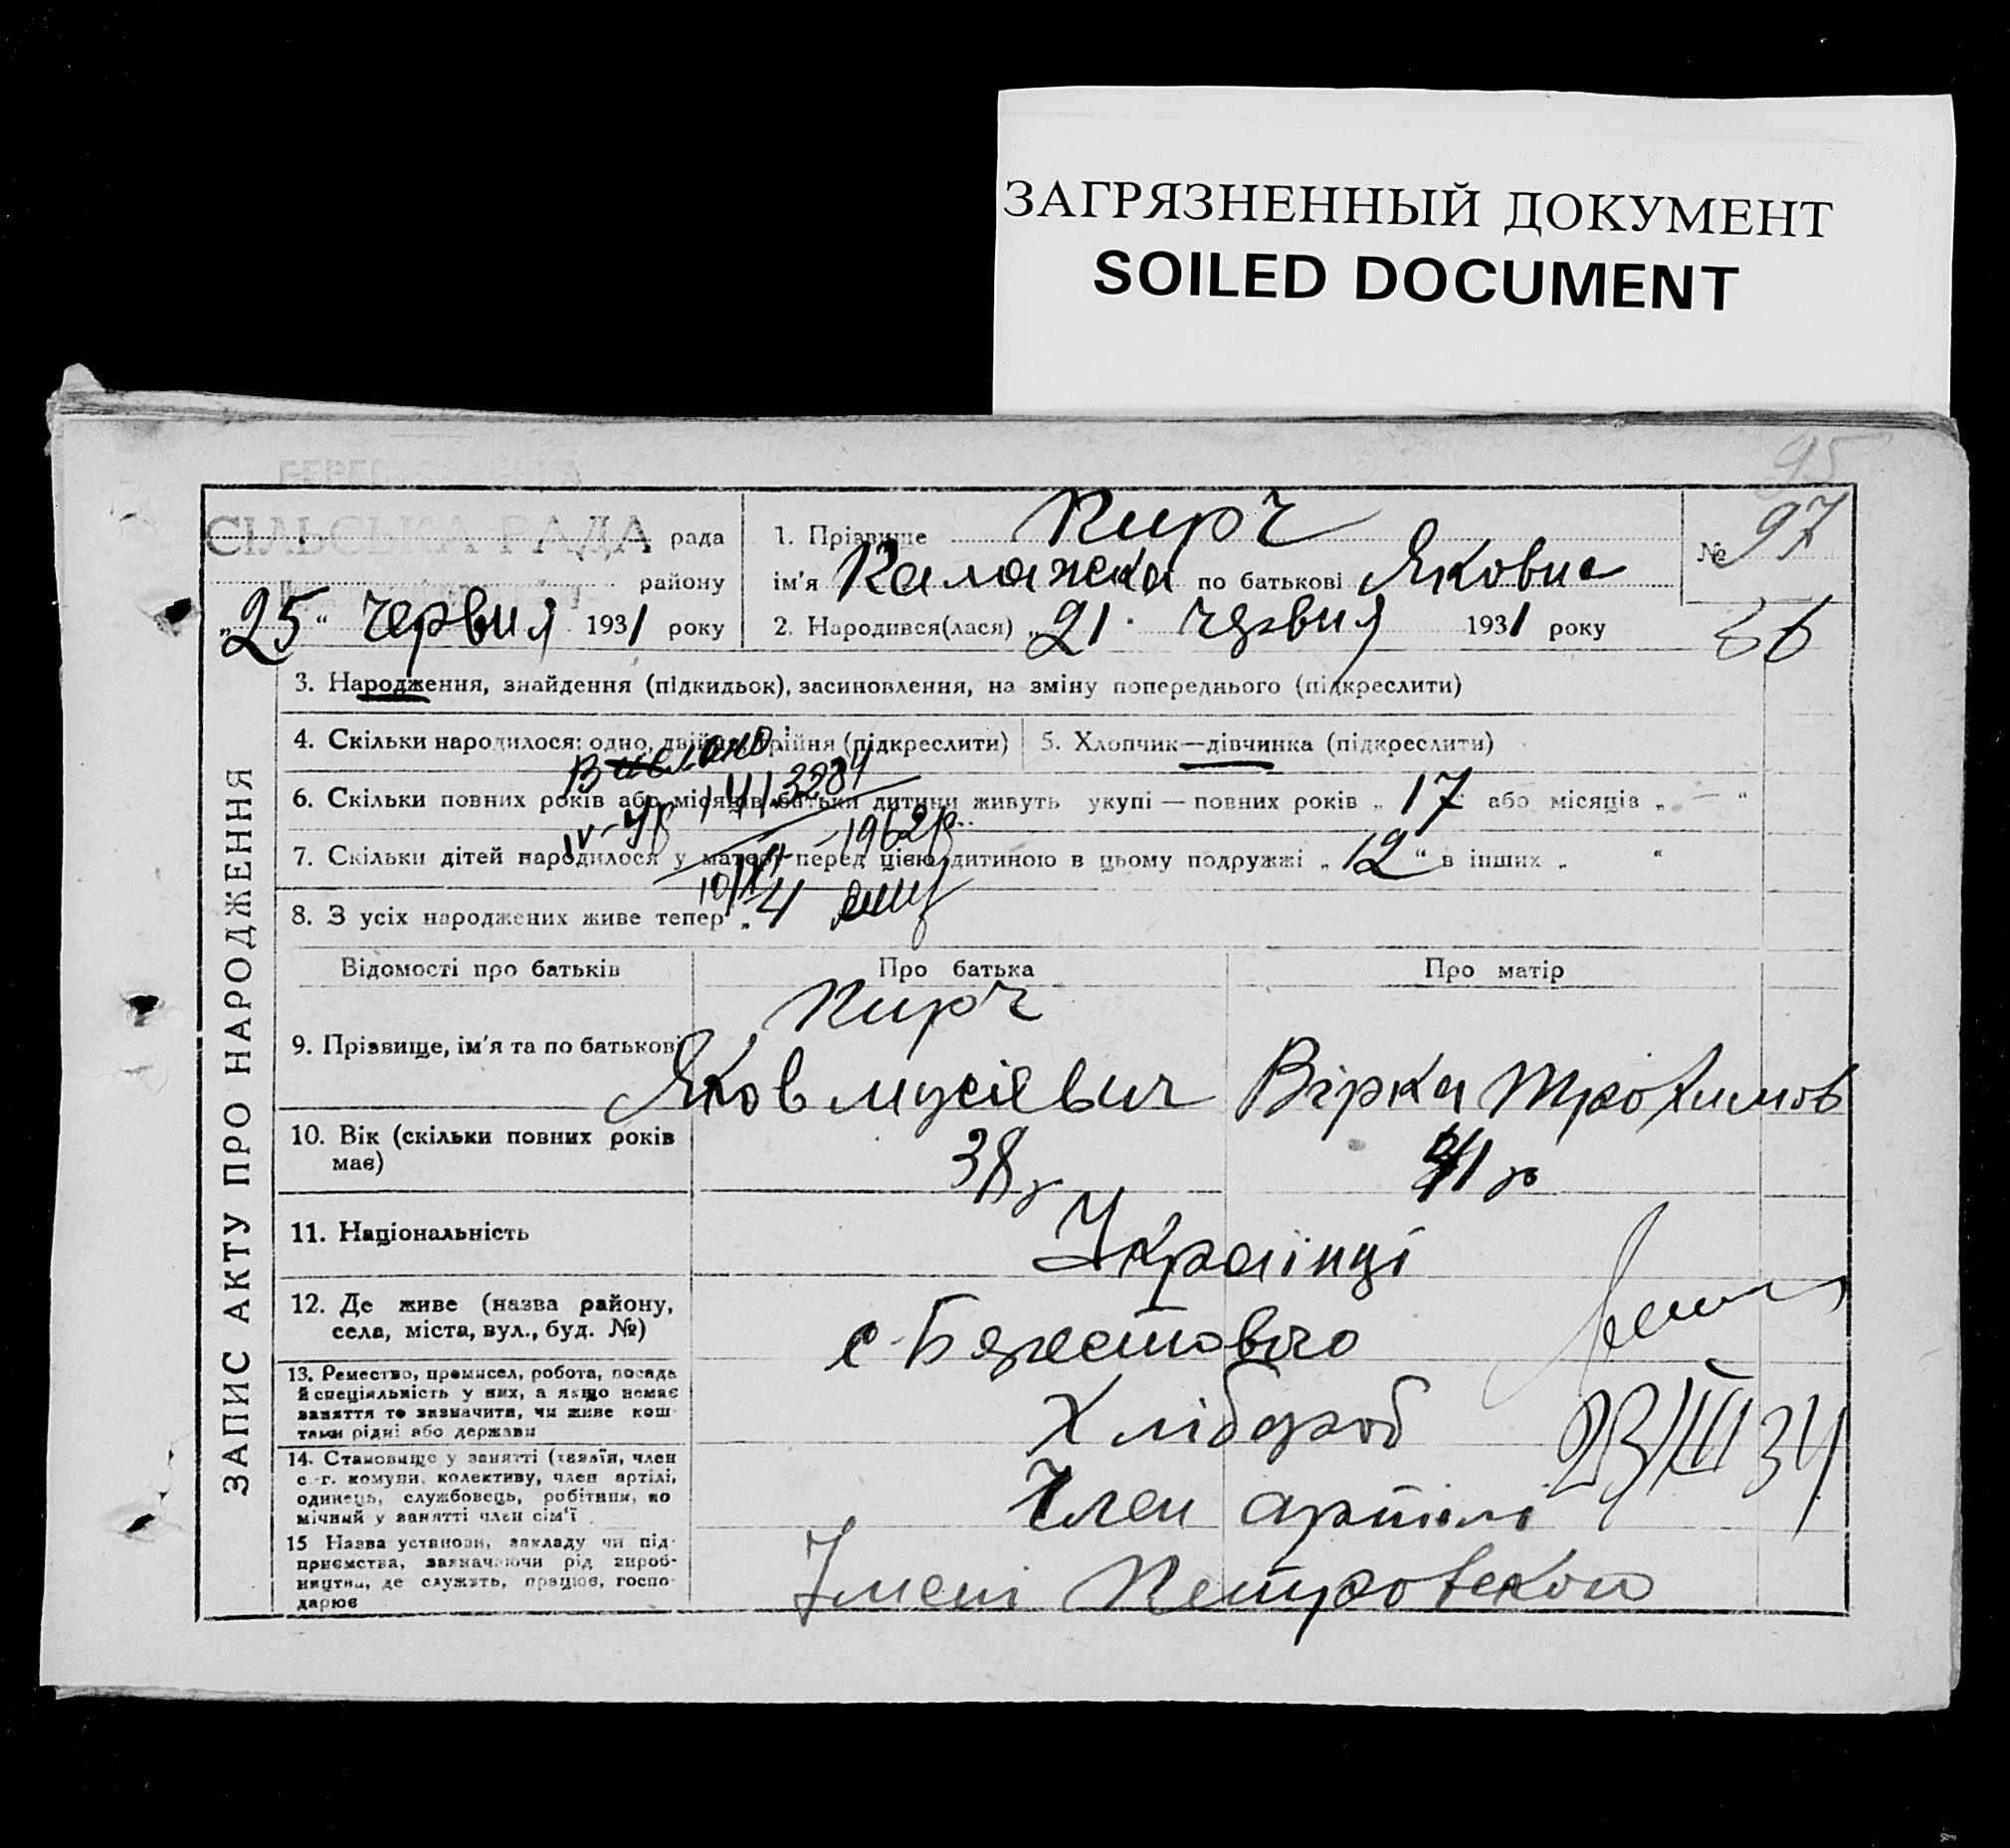 ЗАГРЯЗНЕННЫЙ ДОКУМЕНТ
SOILED DOCUMENT
95
СІЛЬСЬКА РАДА рада
району
„25“ червня 1931 року
1. Прізвище Кирч
ім'я Калажка по батькові Яковна
2. Народився(лася) „21 червня 1931 року
№ 97
66
ЗАПИС АКТУ ПРО НАРОДЖЕННЯ
3. Народження, знайдення (підкидьок), засиновлення, на зміну попереднього (підкреслити)
4. Скільки народилося: одно, двійня, трійня (підкреслити)
5. Хлопчик—дівчинка (підкреслити)
6. Скільки повних років або місяців батьки дитини живуть укупі — повних років „ 17 або місяців „ — “
7. Скільки дітей народилося у матері перед цією дитиною в цьому подружжі „ 12 “ в інших „ “
8. З усіх народжених живе тепер „ 4
1962р.
Відомості про батьків Про батька Про матір
9. Прізвище, ім'я та по батькові Кирч
Яков мусієвич Вірка Трохимов
10. Вік (скільки повних років має) 38 р 41 р
11. Національність Українці
12. Де живе (назва району, села, міста, вул., буд. №) с. Берестового
13. Ремество, промисел, робота, посада й спеціяльність у них, а якщо немає заняття то зазначити, чи живе коштами рідні або держави Хлібороб
23/III 34
14. Становище у занятті (хазяїн, член с.-г. комуни, колективу, член артілі, одинець, службовець, робітник, помічний у занятті член сім'ї Член артілі
15 Назва установи, закладу чи підприємства, зазначаючи рід виробництва, де служить, працює, господарює Імені Петровского